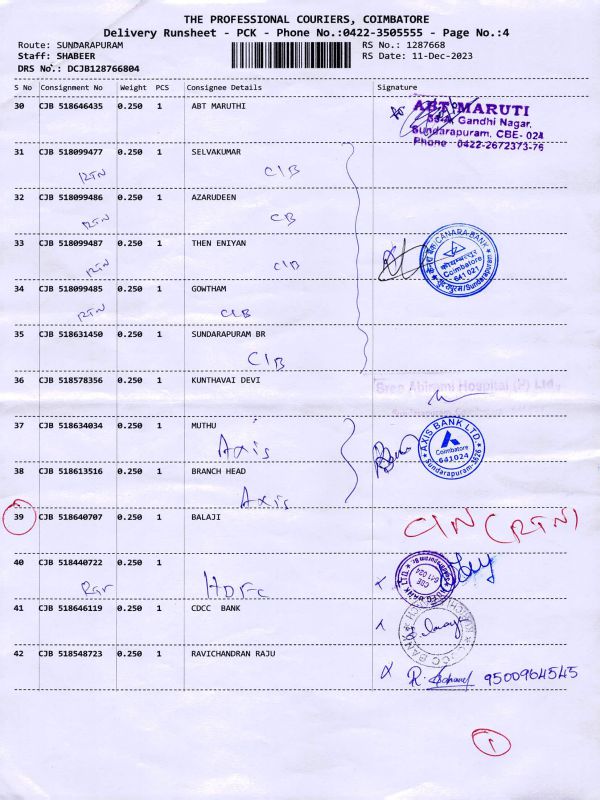 THE PROFESSIONAL COURIERS, COIMBATORE
Delivery Runsheet - PCK - Phone No.:0422-3505555 - Page No.:4
Route: SUNDARAPURAM RS No.: 1287668
Staff: SHABEER RS Date: 11-Dec-2023
DRS No.: DCJB128766804
S No Consignment No Weight PCS Consignee Details Signature
30 CJB 518646435 0.250 1 ABT MARUTHI
ABT MARUTI
Gandhi Nagar,
Sundarapuram, CBE- 024
Phone 0422-2672373-76
31 CJB 518099477 0.250 1 SELVAKUMAR
RTN CIB
32 CJB 518099486 0.250 1 AZARUDEEN
RTN CB
33 CJB 518099487 0.250 1 THEN ENIYAN
RTN CIB
CANARA BANK
Coimbatore
641 021
Sundarapuram
34 CJB 518099485 0.250 1 GOWTHAM
RTN CIB
35 CJB 518631450 0.250 1 SUNDARAPURAM BR
CIB
36 CJB 518578356 0.250 1 KUNTHAVAI DEVI
Sree Abirami Hospital (P) Ltd.,
37 CJB 518634034 0.250 1 MUTHU
Axis
AXIS BANK LTD.
Coimbatore
641024
Sundarapuram-1626
38 CJB 518613516 0.250 1 BRANCH HEAD
Axis
39 CJB 518640707 0.250 1 BALAJI
CIN (RTN)
40 CJB 518440722 0.250 1
HDFC
CBE
641 024
41 CJB 518646119 0.250 1 CDCC BANK
42 CJB 518548723 0.250 1 RAVICHANDRAN RAJU
9500964545
1